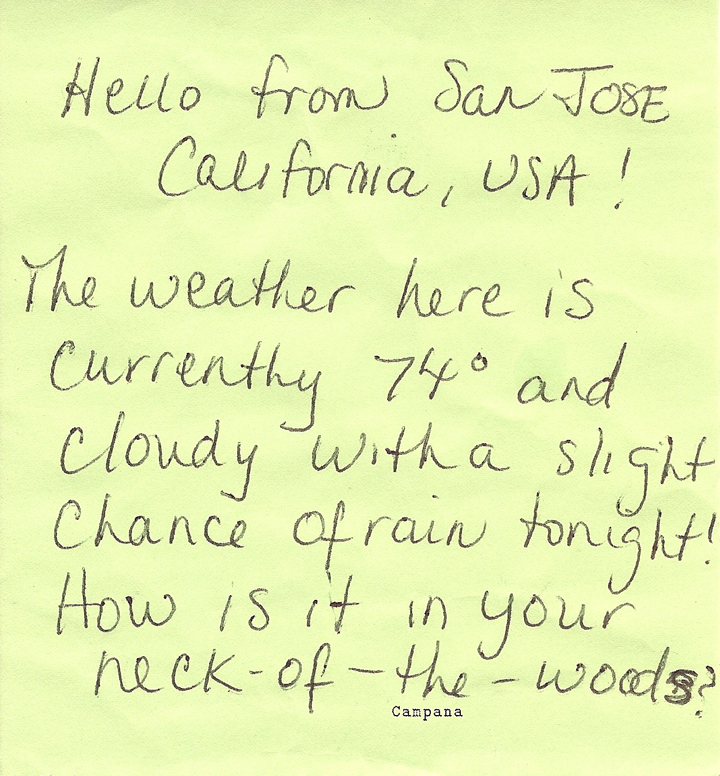 Hello from San JOSE
California, USA!
The weather here is
currently 74° and
cloudy with a slight
chance of rain tonight!
How is it in your
neck-of-the-woods?
Campana